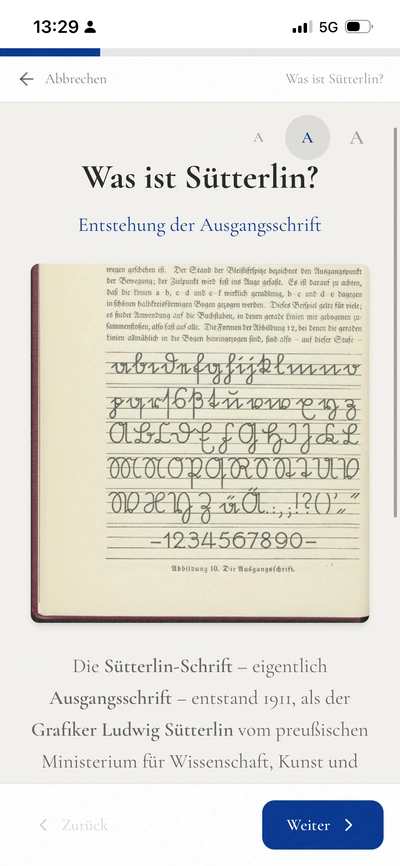 13:29
5G
Abbrechen
Was ist Sütterlin?
A A A
Was ist Sütterlin?
Entstehung der Ausgangsschrift
wegen geschehen ist. Der Stand der Bleistiftspitze bezeichnet den Ausgangspunkt
der Bewegung; der Zielpunkt wird fest ins Auge gefaßt. Es ist darauf zu achten,
daß die Linien a–b, c–d und e–f wirklich geradlinig, b–c und d–e dagegen
in schönen halbkreisförmigen Bogen gezogen werden. Dieses Beispiel gelte für viele;
es findet Anwendung auf die Buchstaben, in denen gerade Linien mit gebogenen zu-
sammenstoßen, also fast auf alle. Die Formen der Abbildung 12, bei denen die geraden
Linien allmählich in die Bogen hineingezogen sind, sind also – auf dieser Stufe –
a b c d e f g h i j k l m n o
p q r s ß t ü v w x y z
A B C D E F G H I J K L
M N O P Q R S T U V
W X Y Z ä Ä . : , ; ! ? ( ) ' „ “
–1234567890–
Abbildung 10. Die Ausgangsschrift.
Die Sütterlin-Schrift – eigentlich
Ausgangsschrift – entstand 1911, als der
Grafiker Ludwig Sütterlin vom preußischen
Ministerium für Wissenschaft, Kunst und
Zurück
Weiter